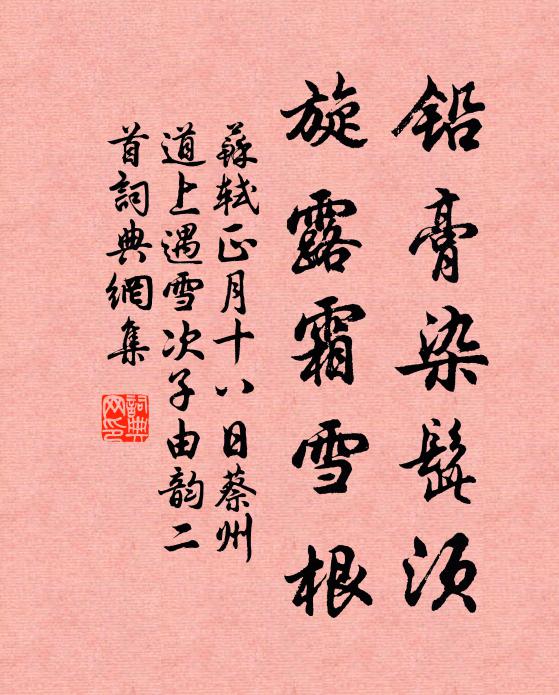 铅膏染髭须
旋露霜雪根
蘇軾正月十八日蔡州
道上遇雪次子由韵二
首詞典網集
詞典网印